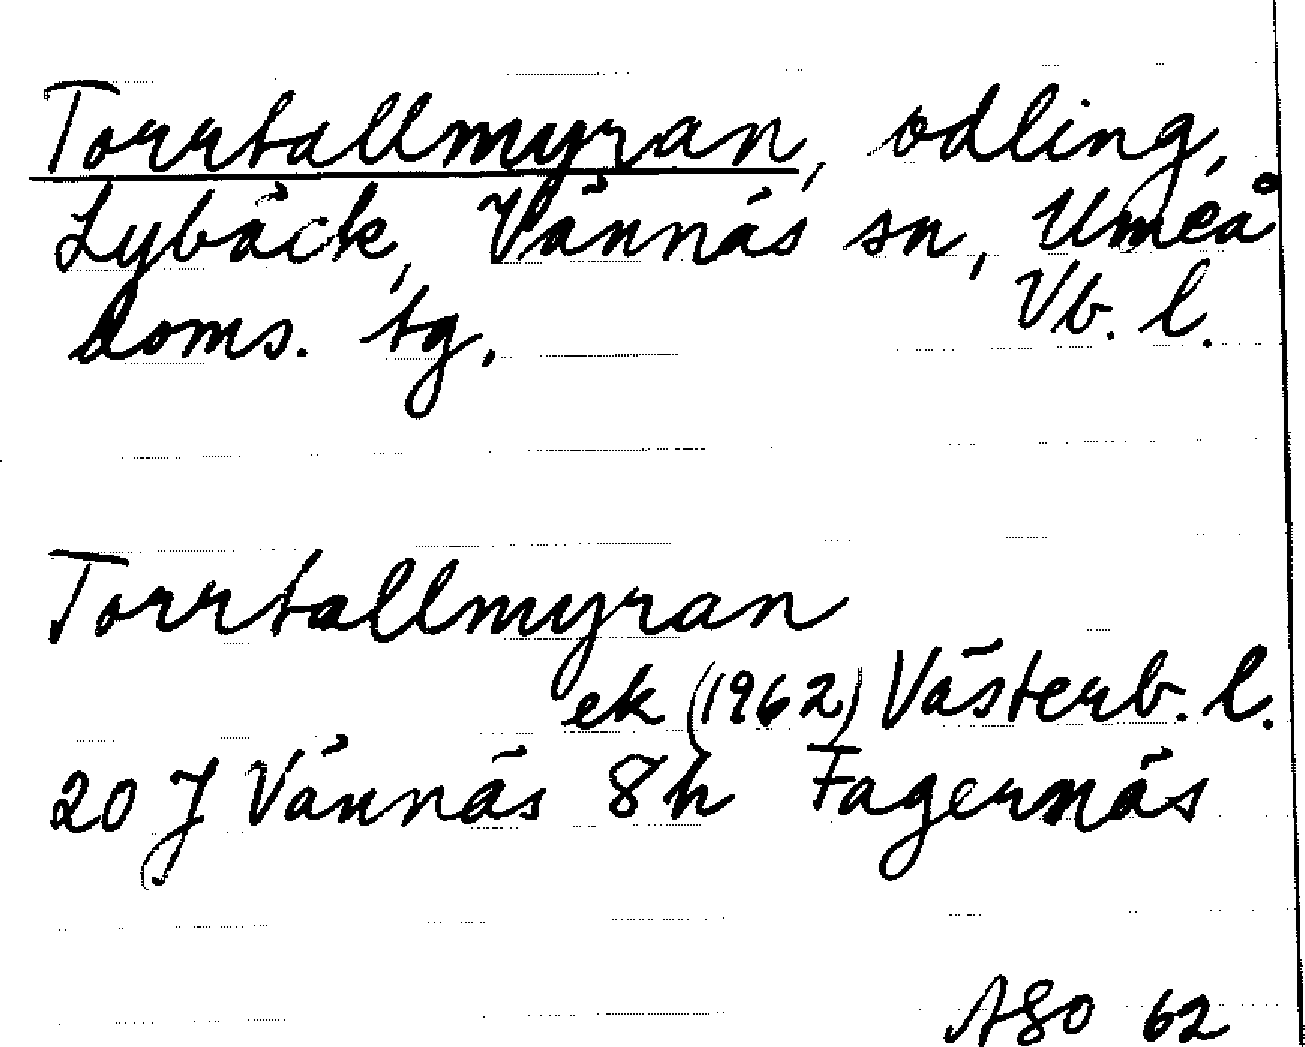 Torrtallmyran, odling,
Lybäck, Vännäs sn, Umeå
doms. tg. Vb. l.
Torrtallmyran
ek (1962) Västerb. l.
20 J Vännäs 8h Fagernäs
ASO 62